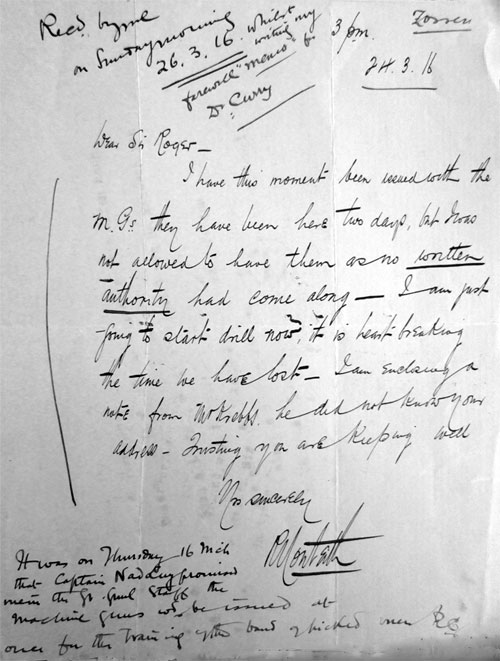 Recd by me
on Sunday morning
26.3.16. whilst
writing my
farewell "memo" for
Dr. Curry
3 pm.
Zossen
24.3.16
Dear Sir Roger—
I have this moment been issued with the
M. Gs they have been here two days, but I was
not allowed to have them as no written
authority had come along — I am just
going to start drill now, it is heart breaking
the time we have lost — I am enclosing a
note from Mr Krebbs, he did not know your
address — Trusting you are keeping well
Yrs sincerely
Monteith
It was on Thursday 16 Mch
that Captain Nadolny promised
me in the Gr. Genl Staff the
machine guns wd. be issued at
once for the training of the band of picked men RC